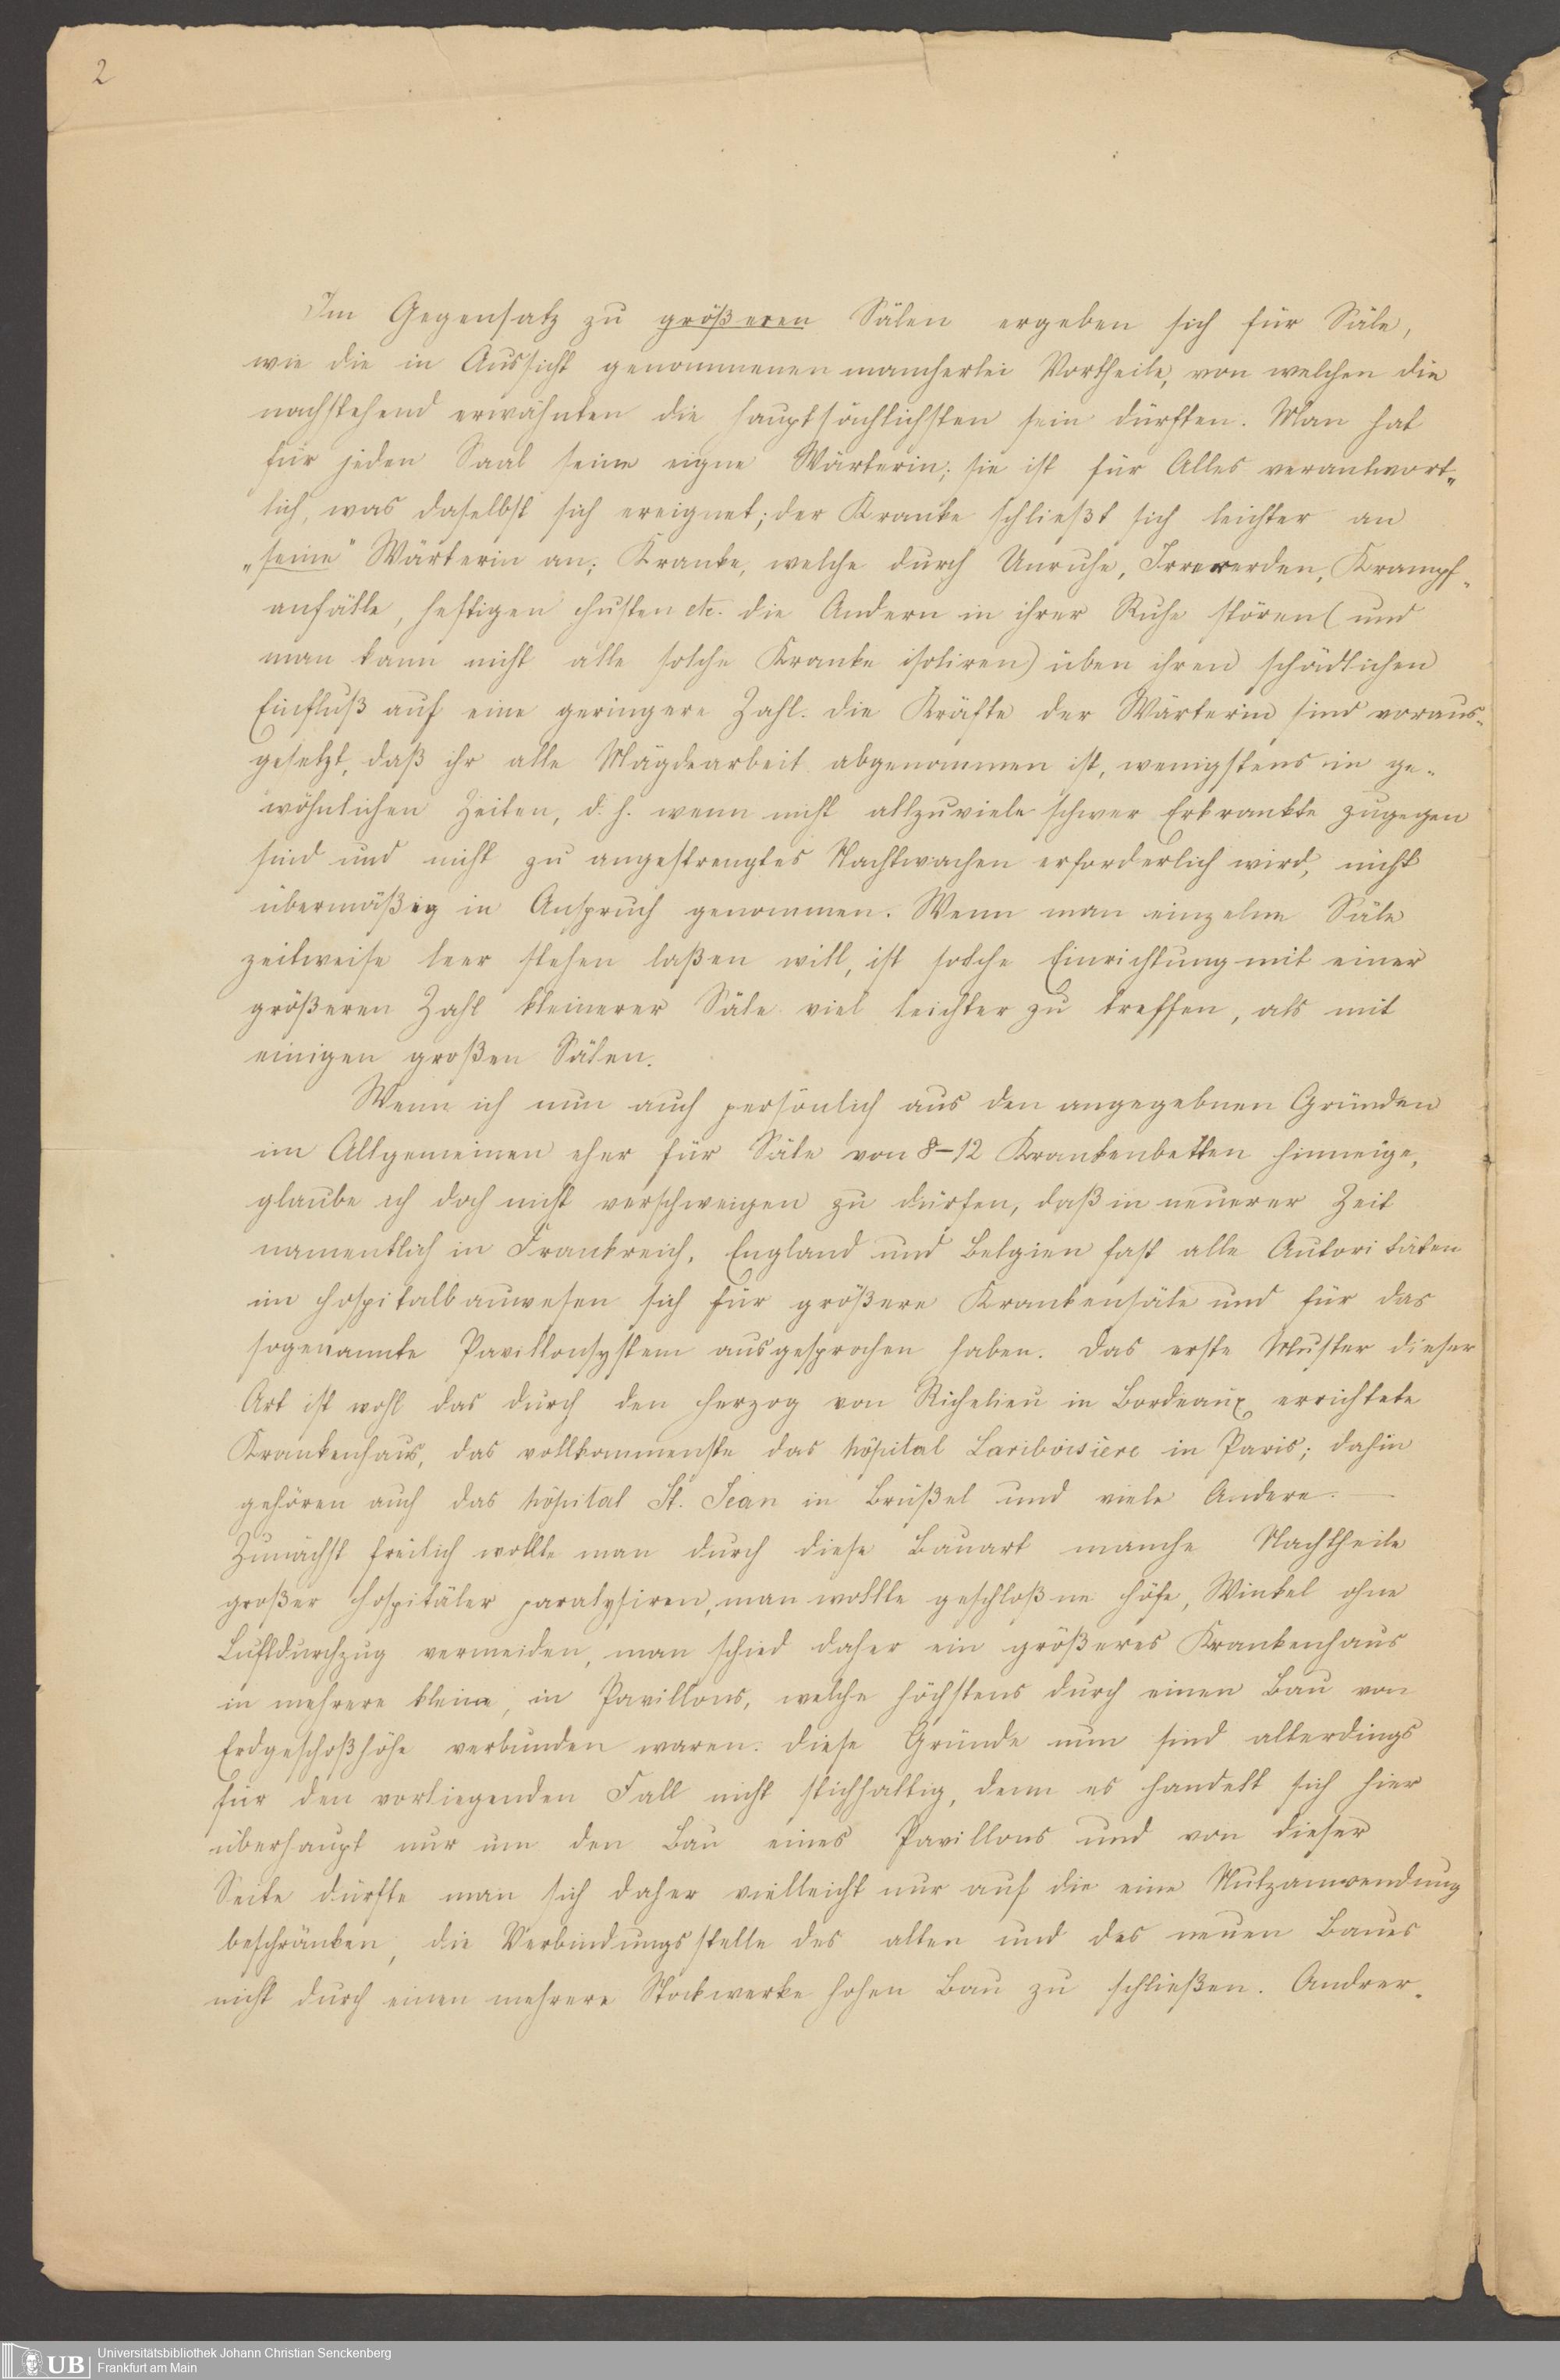 2
Im Gegensatz zu größeren Sälen ergeben sich für Säle,
wie die in Aussicht genommenen mancherlei Vortheile, von welchen die
nachstehend erwähnten die hauptsächlichsten sein dürften. Man hat
für jeden Saal seine eigne Wärterin; sie ist für Alles verantwort-
lich, was daselbst sich ereignet; der Kranke schließt sich leichter an
„seine" Wärterin an; Kranke, welche durch Unruhe, Irrewerden, Krampf-
anfälle, heftigen Husten etc. die Andern in ihrer Ruhe stören (und
man kann nicht alle solche Kranke isoliren) üben ihren schädlichen
Einfluß auf eine geringere Zahl. Die Kräfte der Wärterin sind voraus-
gesetzt, daß ihr alle Mägdearbeit abgenommen ist, wenigstens in ge-
wöhnlichen Zeiten, d. h. wenn nicht allzuviele schwer Erkrankte zugegen
sind und nicht zu angestrengtes Nachtwachen erforderlich wird, nicht
übermäßig in Anspruch genommen. Wenn man einzelne Säle
zeitweise leer stehen laßen will, ist solche Einrichtung mit einer
größeren Zahl kleinerer Säle viel leichter zu treffen, als mit
einigen großen Sälen.
Wenn ich nun auch persönlich aus den angegebnen Gründen
im Allgemeinen eher für Säle von 8-12 Krankenbetten hinneige,
glaube ich doch nicht verschweigen zu dürfen, daß in neuerer Zeit
namentlich in Frankreich, England und Belgien fast alle Autoritäten
im Hospitalbauwesen sich für größere Krankensäle und für das
sogenannte Pavillonsystem ausgesprochen haben. Das erste Muster dieser
Art ist wohl das durch den Herzog von Richelieu in Bordeaux errichtete
Krankenhaus, das vollkommenste das hôpital Lariboisière in Paris; dahin
gehören auch das hôpital St. Jean in Brüßel und viele Andere. —
Zunächst freilich wollte man durch diese Bauart manche Nachtheile
großer Hospitäler paralysiren, man wollte geschloßne Höfe, Winkel ohne
Luftdurchzug vermeiden, man schied daher ein größeres Krankenhaus
in mehrere kleine, in Pavillons, welche höchstens durch einen Bau von
Erdgeschoßhöhe verbunden waren. Diese Gründe nun sind allerdings
für den vorliegenden Fall nicht stichhaltig, denn es handelt sich hier
überhaupt nur um den Bau eines Pavillons und von dieser
Seite dürfte man sich daher vielleicht nur auf die eine Nutzanwendung
beschränken, die Verbindungsstelle des alten und des neuen Baues
nicht durch einen mehrere Stockwerke hohen Bau zu schließen. Andrer-
UB
Universitätsbibliothek Johann Christian Senckenberg
Frankfurt am Main